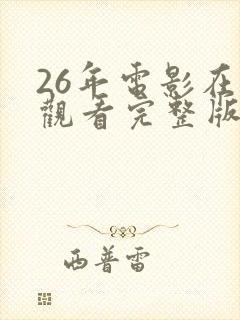 26年電影在
觀看完整版
西普雷